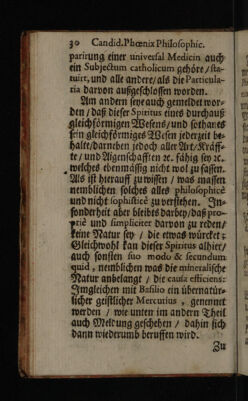 30 Candid. Phœnix Philosophic.
parirung einer universal Medicin auch
ein Subjectum catholicum gehöre / sta-
tuirt, und alle andere / als die Particula-
ria darvon außgeschlossen worden.
Am andern seye auch gemeldet wor-
den / daß dieser Spiritus eines durchauß
gleichförmigen Wesens / und sothanes
sein gleichförmiges Wesen jederzeit be-
halte / darneben jedoch alle Art / Kräff-
te / und Aigenschafften ꝛc. fähig sey ꝛc.
welches ebenmässig nicht wol zu fassen.
Als ist hierauff zu wissen / was massen
nemblichen solches alles philosophicè
und nicht sophisticè zu verstehen. In-
sonderheit aber bleibts darbey / daß pro-
priè und simpliciter darvon zu reden /
keine Natur sey / die etwas würcket:
Gleichwohl kan dieser Spiritus allhier /
auch sonsten suo modo & secundum
quid, nemblichen was die mineralische
Natur anbelangt / die causa efficiens:
Imgleichen mit Basilio ein übernatür-
licher geistlicher Mercurius, genennet
werden / wie unten im andern Theil
auch Meldung geschehen / dahin sich
dann wiederumb beruffen wird.
Zu